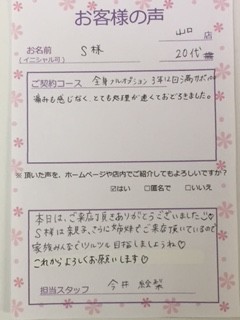 お客様の声
山口 店
お名前 S様 20代 歳
(イニシャル可)
ご契約コース 全身フルオプション 3年12回 満サポート
痛みも感じなく、とても処理が速くておどろきました。
※ 頂いた声を、ホームページや店内でご紹介してもよろしいですか?
☑はい □匿名で □いいえ
本日は、ご来店頂きありがとうございました
S様は
ご来店頂いているので
家族みんなでツルツル目指しましょうね♡
これからよろしくお願いします♡
担当スタッフ 今井 絵梨